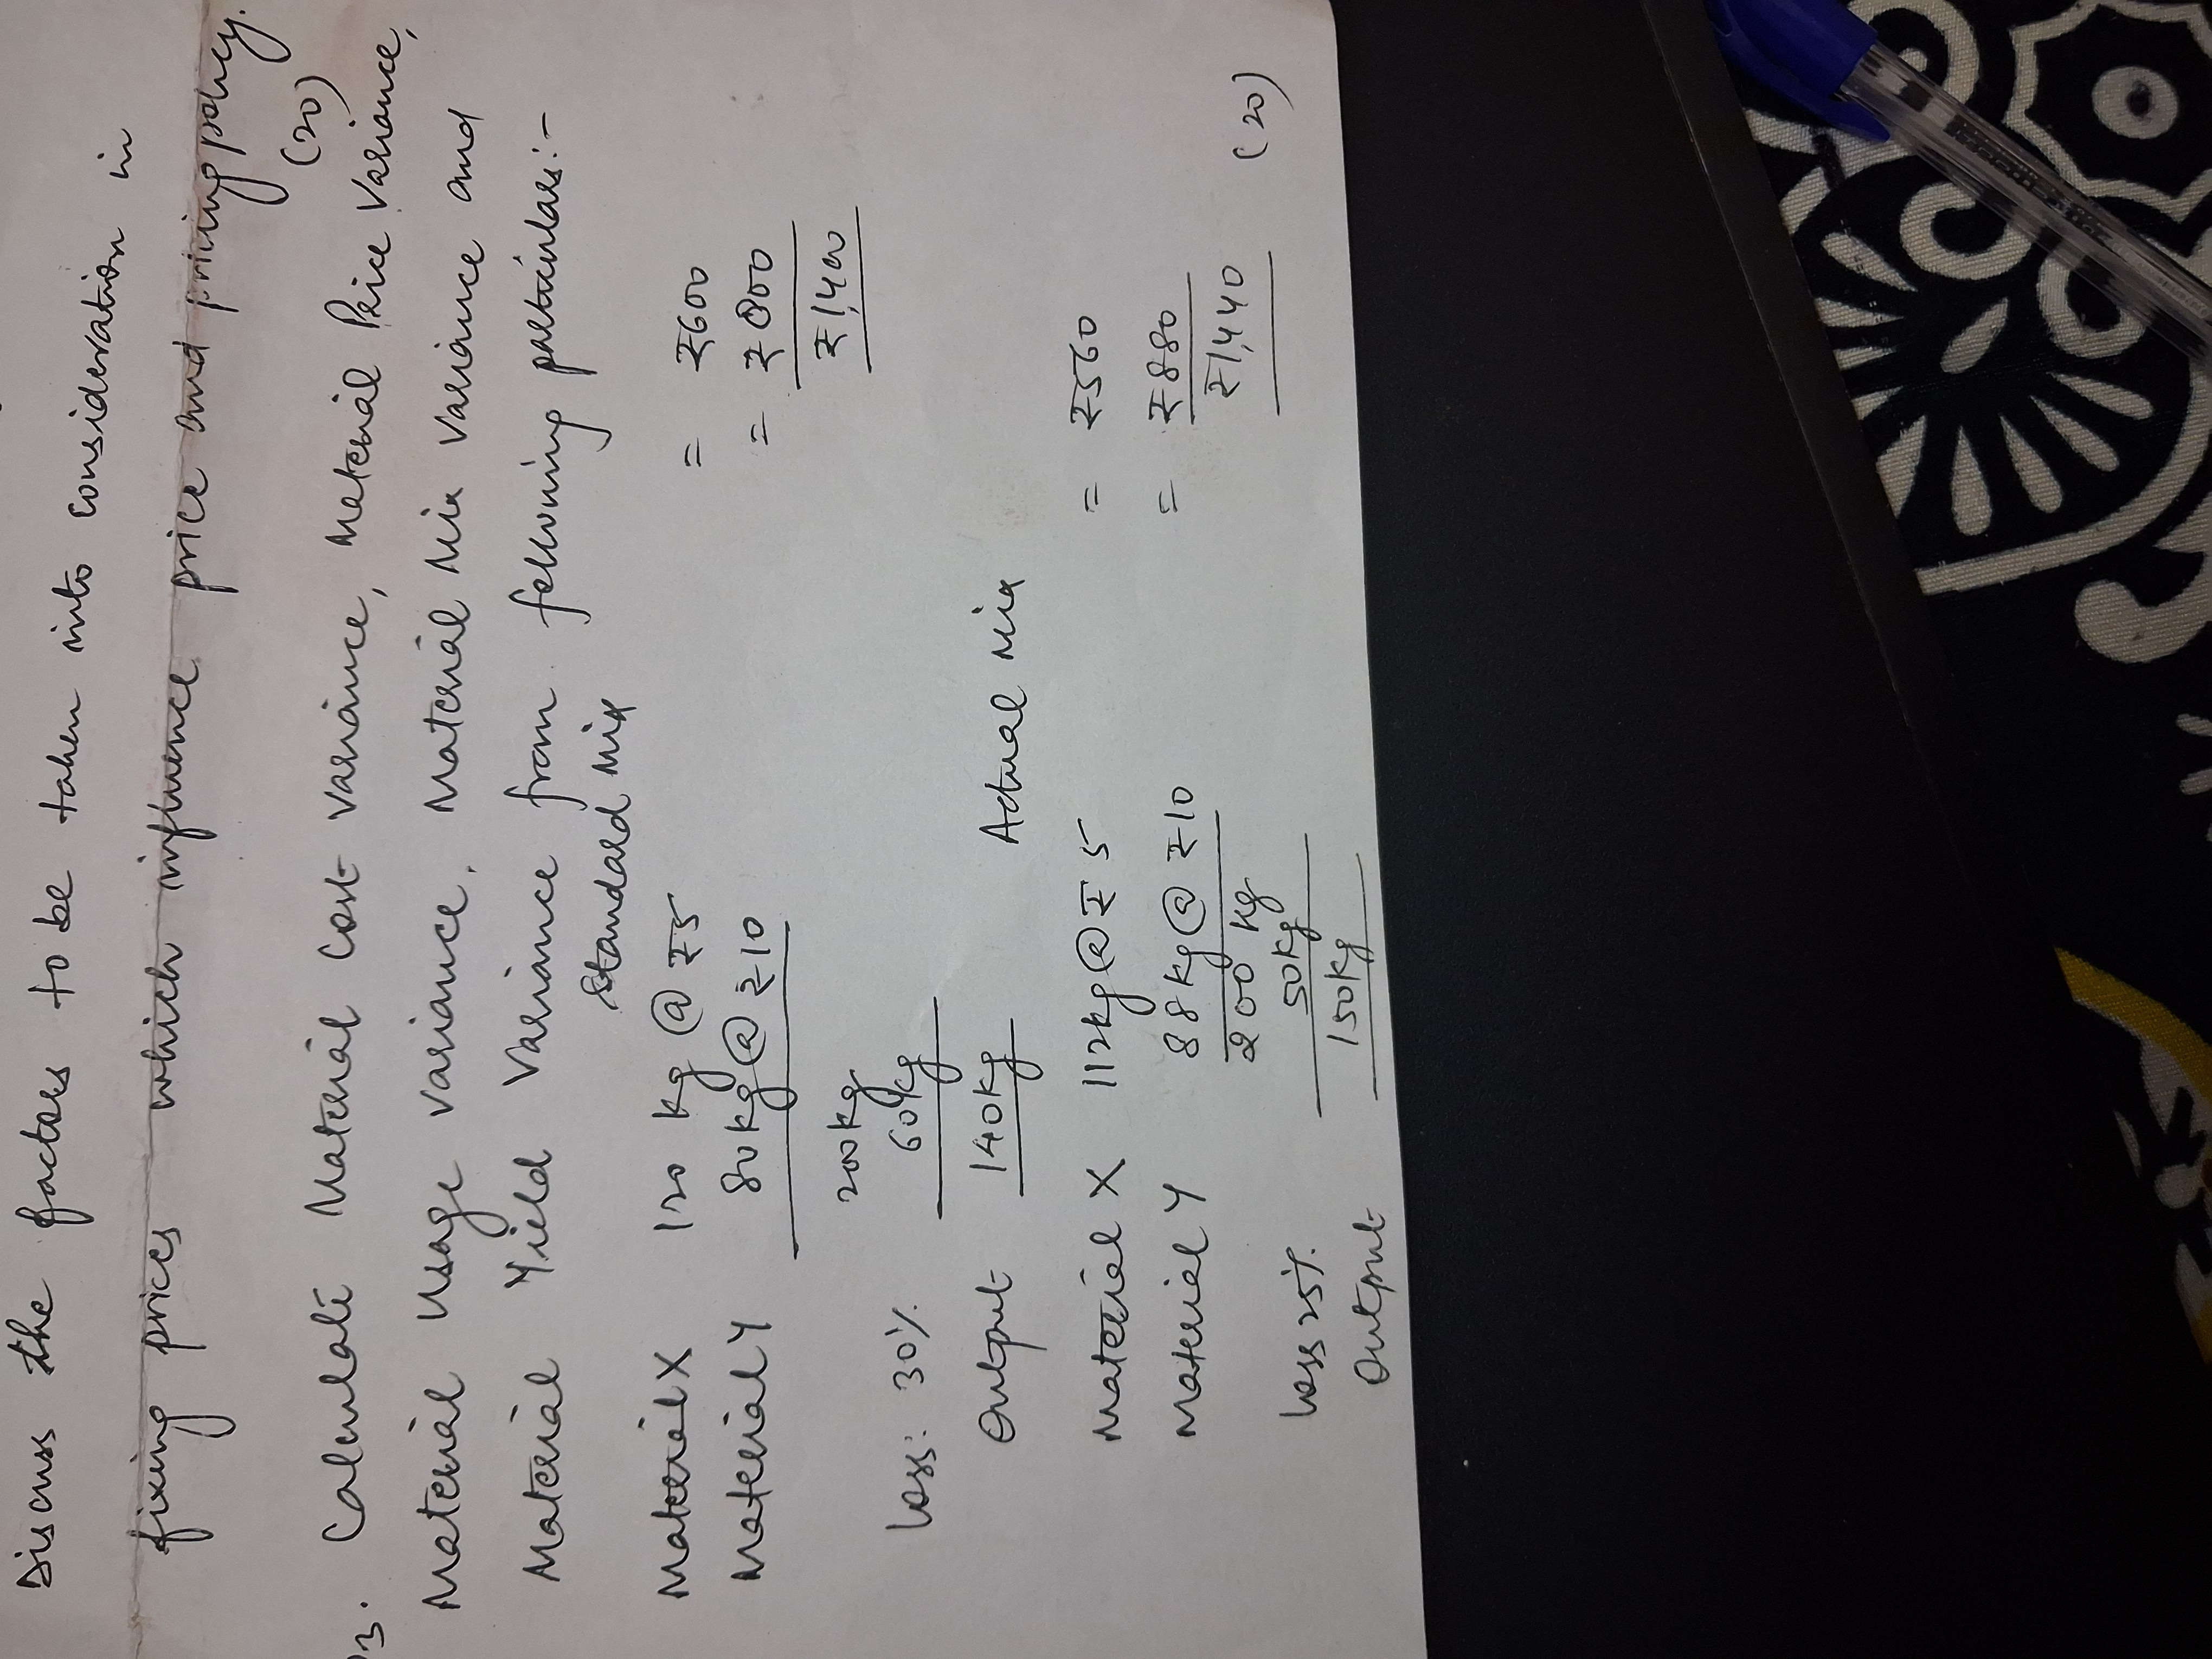 Discuss the factors to be taken into consideration in
fixing prices which influence price and pricing policy.
(20)
3. Calculate Material Cost Variance, Material Price Variance,
Material Usage Variance, Material Mix Variance and
Material Yield Variance from following particulars:-
Standard Mix
Material X 120 kg @ ₹5 = ₹600
Material Y 80kg @ ₹10 = ₹800
200kg ₹1,400
Loss: 30% 60kg
Output 140kg
Actual Mix
Material X 112kg @ ₹5 = ₹560
Material Y 88kg @ ₹10 = ₹880
200 kg ₹1,440 (20)
Loss 25% 50kg
Output 150kg